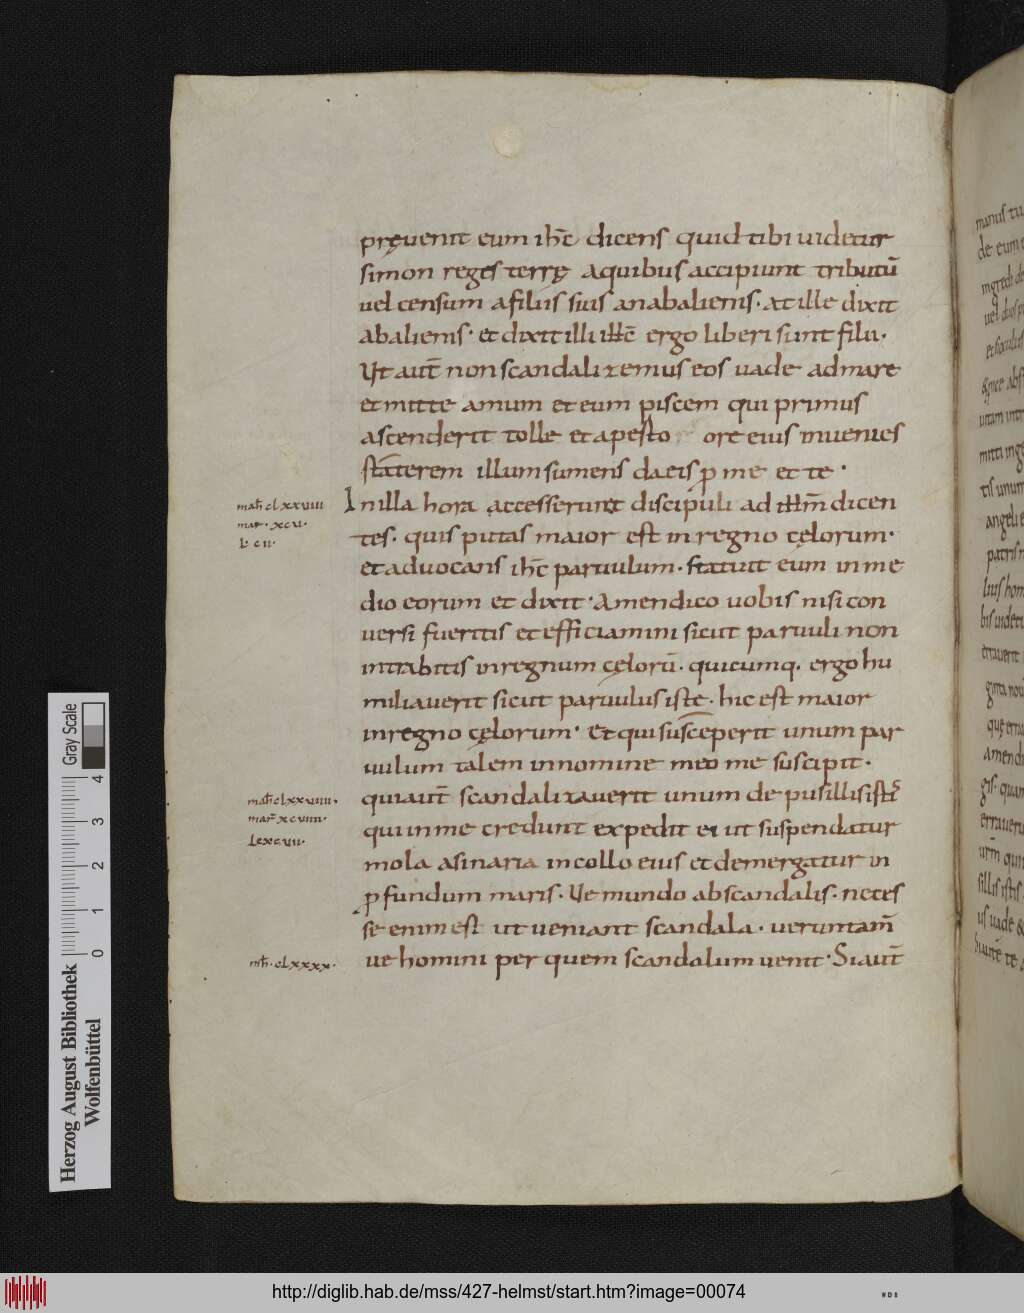 pręuenit eum ihc̄ dicens quid tibi uidetur
simon reges terrę aquibus accipiunt tributū
uel censum afiliis siuis anabalienis. at ille dixit
abalienis. et dixit illi ihc̄ ergo liberi sunt filii.
Ut aut̄ non scandalizemus eos uade admare
et mitte amum et eum piscem qui primus
ascenderit tolle et apesto ore eius inuenies
statterem illum sumens da eis p me et te.
mat̄h clxxuiiii
mar. xcu.
l. cii.
Inilla hora accesserunt discipuli ad ihm̄ dicen
tes. quis putas maior est in regno cęlorum.
et aduocans ihc̄ paruulum. statuit eum in me
dio eorum et dixit. Amen dico uobis nisi con
uersi fueritis et efficiamini sicut paruuli non
intrabitis inregnum cęlorū. quicumq. ergo hu
miliauerit sicut paruulus iste. hic est maior
inregno cęlorum. Et qui susceperit unum par
uulum talem innomine meo me suscipit.
mat̄h clxxuiiii.
mar̄ xcuiii.
lcxcuii.
quiaut̄ scandalizauerit unum de pusillis isti
qui in me credunt expedit ei ut suspendatur
mola asinaria incollo eius et demergatur in
pfundum maris. Ue mundo abscandalis. neces
se enim est ut ueniant scandala. ueruntam̄
mth̄. clxxxx.
ue homini per quem scandalum uenit. Siaut̄
manus tu
de eum
uel duos p
angeli e
patris m
lius hom
bis uidetu
amendi
gis. quam
erraueru
urm̄ qui
sillis istis
us uade &
Siaute te
Herzog August Bibliothek
Wolfenbüttel
0 1 2 3 4
Gray Scale
http://diglib.hab.de/mss/427-helmst/start.htm?image=00074
WDB